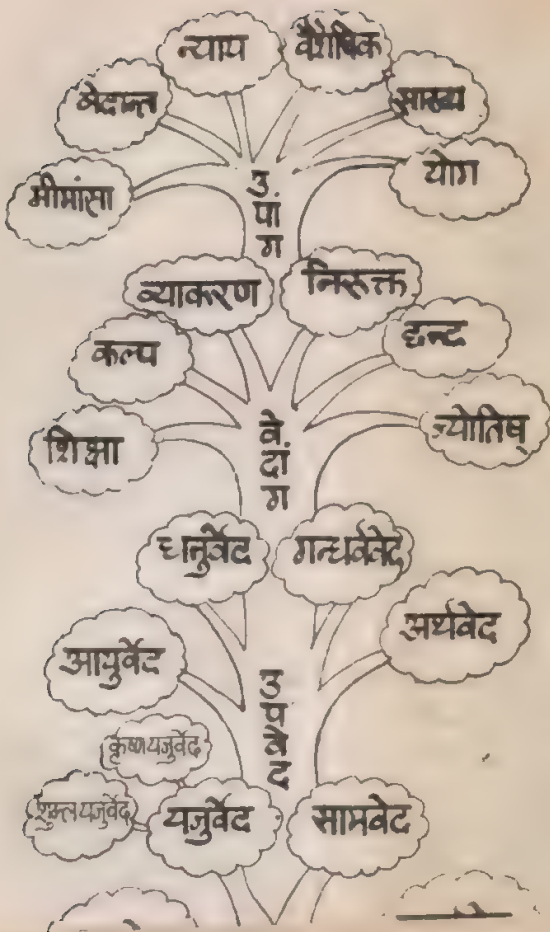 न्याय
वैशेषिक
वेदान्त
सांख्य
मीमांसा
योग
उपांग
व्याकरण
निरूक्त
कल्प
छन्द
शिक्षा
ज्योतिष्
वेदांग
धनुर्वेद
गन्धर्ववेद
आयुर्वेद
अर्थवेद
उपवेद
कृष्णयजुर्वेद
शुक्लयजुर्वेद
यजुर्वेद
सामवेद